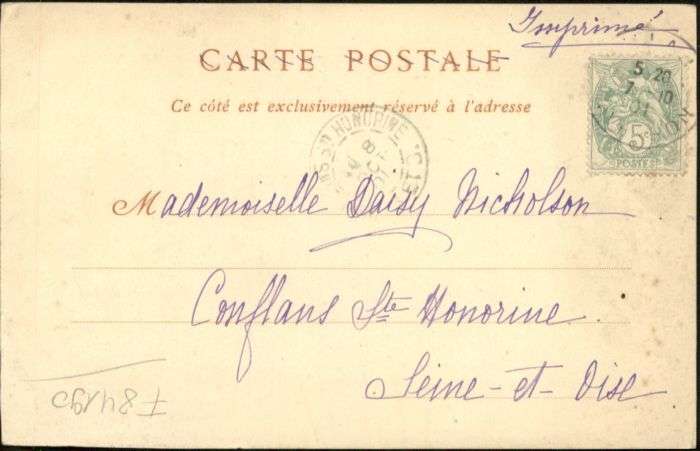 Imprimé
CARTE POSTALE
Ce côté est exclusivement réservé à l'adresse
5 20
7 10
01
5c
POSTES
HONORINE
8
Mademoiselle Daisy Nicholson
Conflans Ste Honorine
Seine-et-Oise
F84190